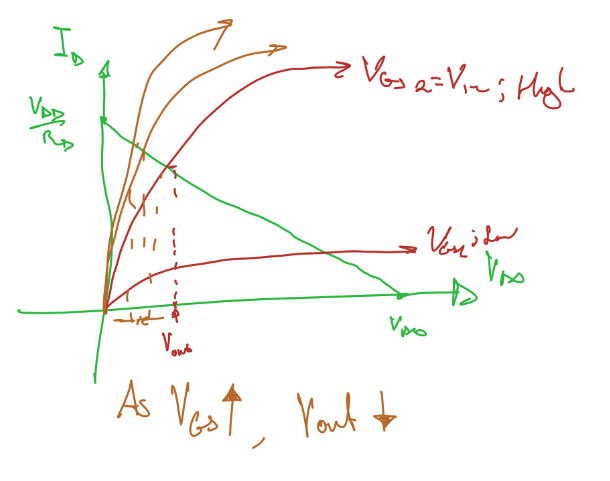 I_D
V_DD/R_D
V_GS2=Vin; High
V_GS1; Low
V_DS
V_DD
Vout
As V_GS↑, Vout↓